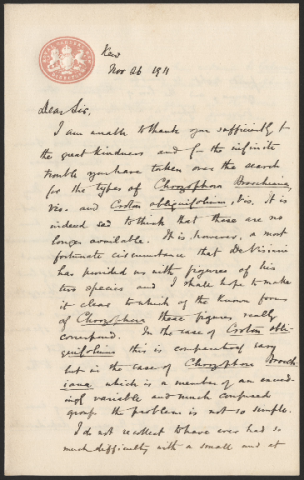 Kew
Nov 26 1911
Dear Sir,
I am unable to thank you sufficiently for
the great kindness and for the infinite
trouble you have taken over the search
for the types of Chrozophora Brocchiana,
Vis. and Croton obliquifolium, Vis. It is
indeed sad to think that these are no
longer available. It is, however, a most
fortunate circumstance that De Visiani
has provided us with figures of his
two species and I shall hope to make
it clear to which of the known forms
of Chrozophora these figures really
correspond. In the case of Croton obli-
quifolium this is comparatively easy
but in the case of Chrozophora Brocch-
iana which is a member of an exceed-
ingly variable and much confused
group the problem is not so simple.
I do not recollect to have ever had so
much difficulty with a small and at